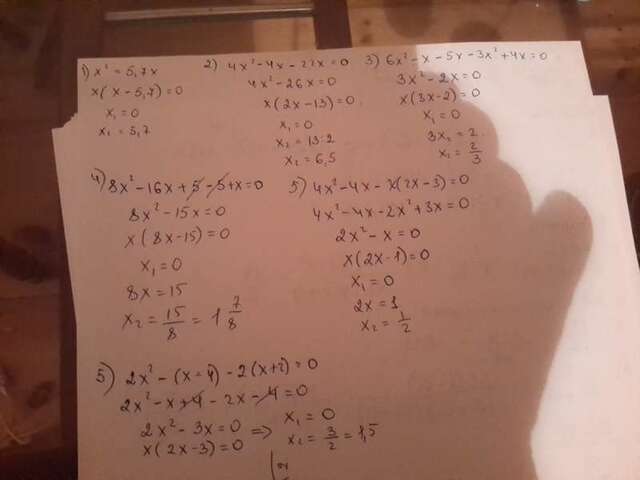 1) x² = 5,7x
x(x-5,7)=0
x₁=0
x₁=5,7
2) 4x²-4x-22x=0
4x²-26x=0
x(2x-13)=0
x₁=0
x₂=13:2
x₂=6,5
3) 6x²-x-5x-3x²+4x=0
3x²-2x=0
x(3x-2)=0
x₁=0
3x₂=2
x₂=2/3
4) 8x²-16x+5-5+x=0
8x²-15x=0
x(8x-15)=0
x₁=0
8x=15
x₂=15/8=1 7/8
5) 4x²-4x-x(2x-3)=0
4x²-4x-2x²+3x=0
2x²-x=0
x(2x-1)=0
x₁=0
2x=1
x₂=1/2
5) 2x²-(x-4)-2(x+2)=0
2x²-x+4-2x-4=0
2x²-3x=0 =>
x(2x-3)=0
x₁=0
x₂=3/2=1,5